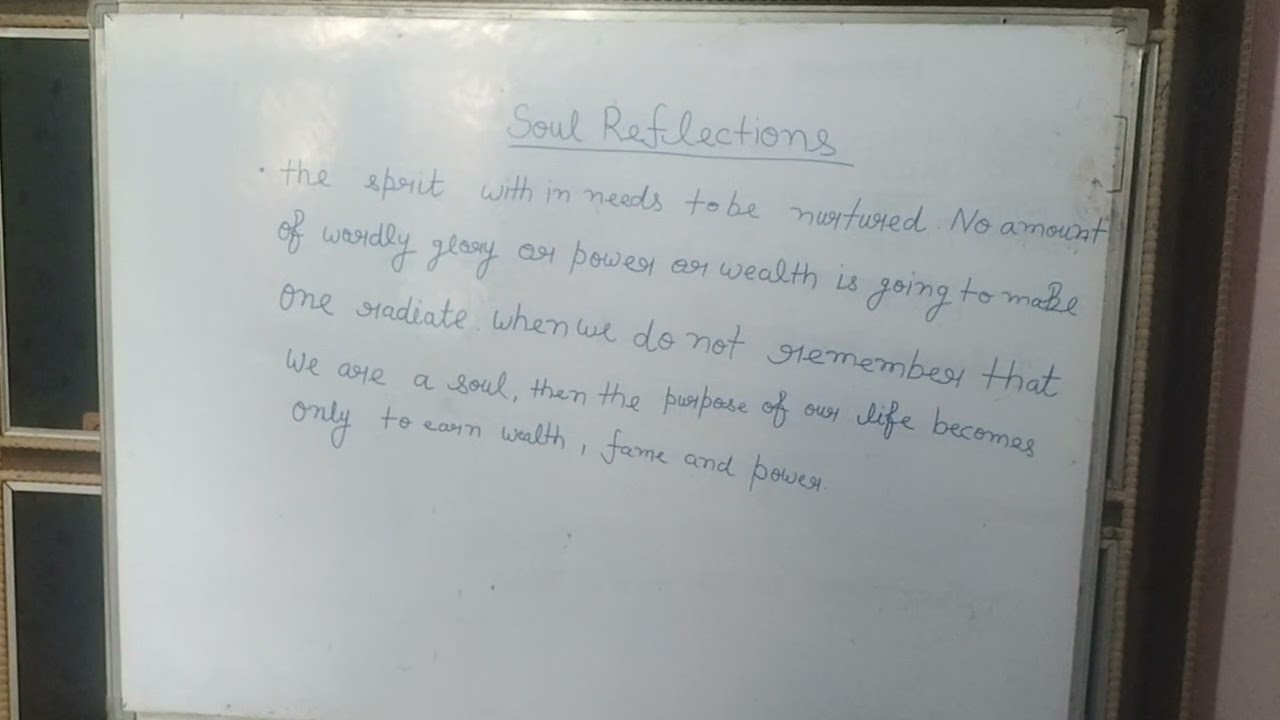 Soul Reflections
• the sprit with in needs to be nurtured. No amount
of wordly glory or power or wealth is going to make
one radiate. when we do not remember that
we are a soul, then the purpose of our life becomes
only to earn wealth, fame and power.